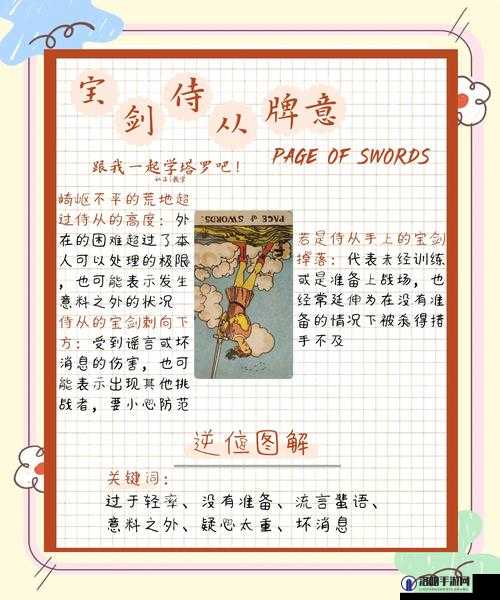 宝剑侍从牌意
PAGE OF SWORDS
跟我一起学塔罗吧！
崎岖不平的荒地超
过侍从的高度：外
在的困难超过了本
人可以处理的极限
，也可能表示发生
意料之外的状况
侍从的宝剑刺向下
方：受到谣言或坏
消息的伤害，也可
能表示出现其他挑
战者，要小心防范
PAGE of SWORDS.
若是侍从手上的宝剑
掉落：代表未经训练
或是准备上战场，也
经常延伸为在没有准
备的情况下被杀得措
手不及
逆位图解
关键词：
过于轻率、没有准备、流言蜚语、
意料之外、疑心太重、坏消息
洛明手游网